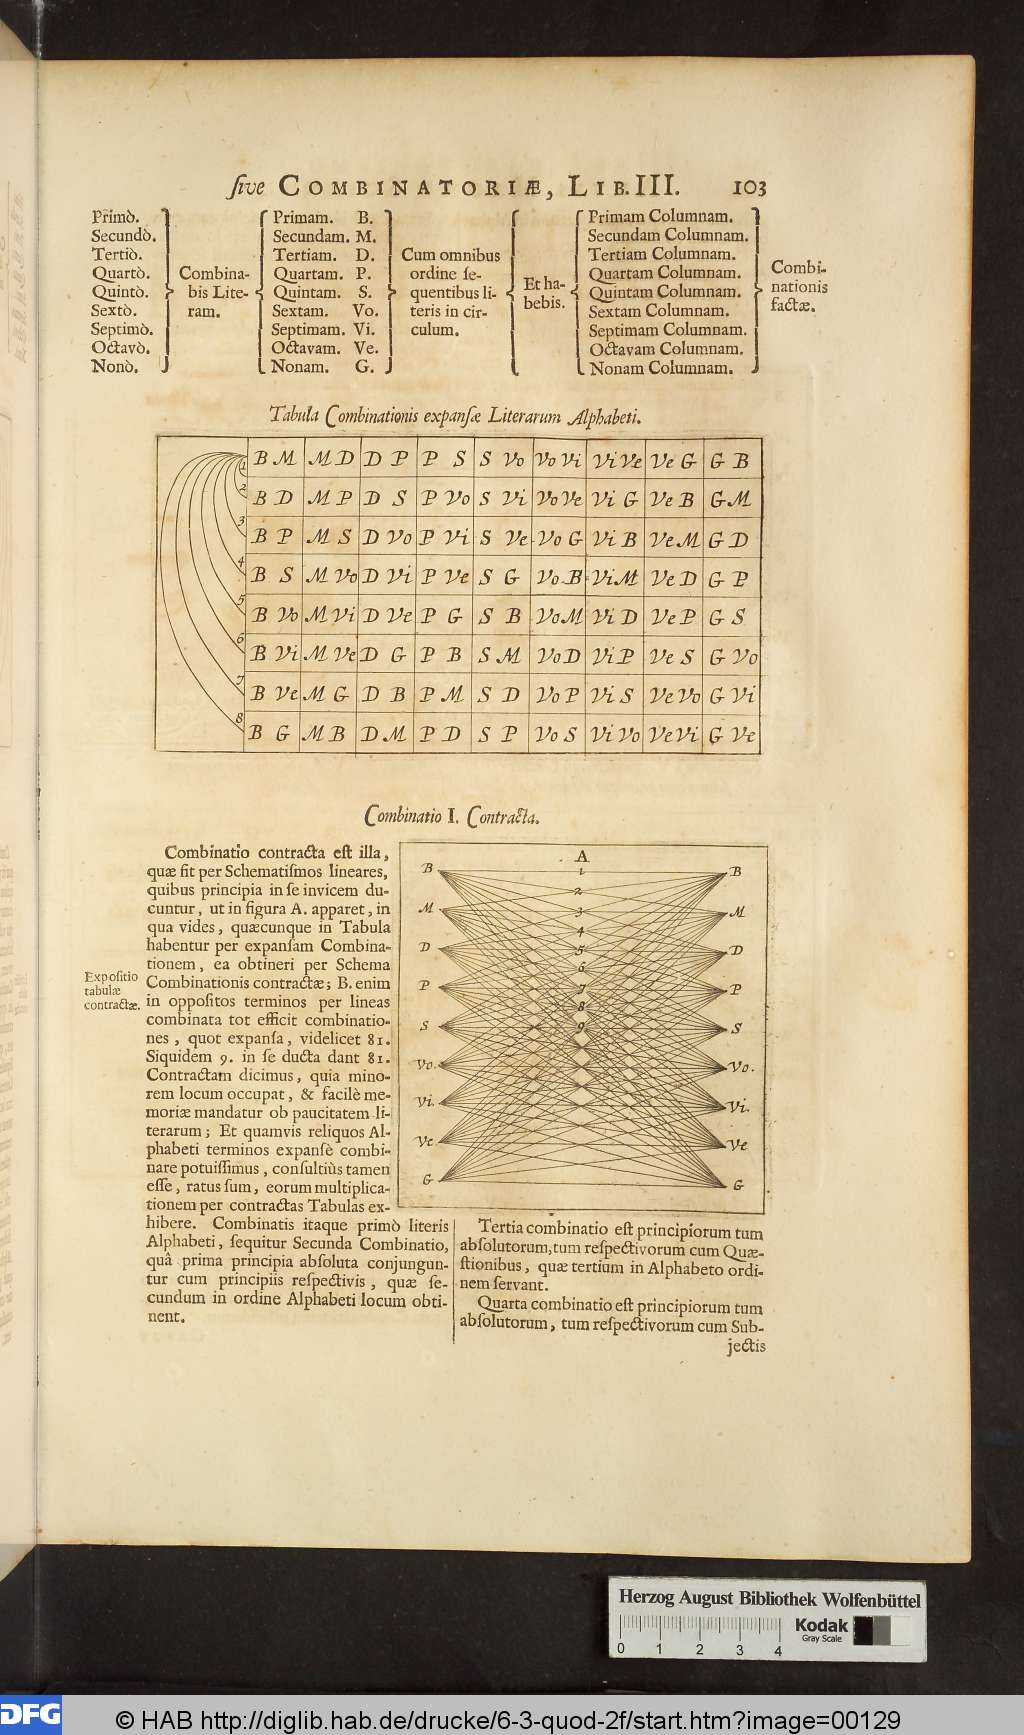 ſive COMBINATORIÆ, LIB. III. 103
Primò. Primam. B. Primam Columnam.
Secundò. Secundam. M. Secundam Columnam.
Tertiò. Tertiam. D. Cum omnibus Tertiam Columnam.
Quartò. Combina- Quartam. P. ordine ſe- Et ha- Quartam Columnam. Combi-
Quintò. bis Lite- Quintam. S. quentibus li- bebis. Quintam Columnam. nationis
Sextò. ram. Sextam. Vo. teris in cir- Sextam Columnam. factæ.
Septimò. Septimam. Vi. culum. Septimam Columnam.
Octavò. Octavam. Ve. Octavam Columnam.
Nonò. Nonam. G. Nonam Columnam.
Tabula Combinationis expanſæ Literarum Alphabeti.
1 B M M D D P P S S Vo Vo Vi Vi Ve Ve G G B
2 B D M P D S P Vo S Vi Vo Ve Vi G Ve B G M
3 B P M S D Vo P Vi S Ve Vo G Vi B Ve M G D
4 B S M Vo D Vi P Ve S G Vo B Vi M Ve D G P
5 B Vo M Vi D Ve P G S B Vo M Vi D Ve P G S
6 B Vi M Ve D G P B S M Vo D Vi P Ve S G Vo
7 B Ve M G D B P M S D Vo P Vi S Ve Vo G Vi
8 B G M B D M P D S P Vo S Vi Vo Ve Vi G Ve
Combinatio I. Contracta.
Combinatio contracta eſt illa,
quæ fit per Schematiſmos lineares,
quibus principia in ſe invicem du-
cuntur, ut in figura A. apparet, in
qua vides, quæcunque in Tabula
habentur per expanſam Combina-
tionem, ea obtineri per Schema
Combinationis contractæ; B. enim
in oppoſitos terminos per lineas
combinata tot efficit combinatio-
nes, quot expanſa, videlicet 81.
Siquidem 9. in ſe ducta dant 81.
Contractam dicimus, quia mino-
rem locum occupat, & facilè me-
moriæ mandatur ob paucitatem li-
terarum; Et quamvis reliquos Al-
phabeti terminos expanſè combi-
nare potuiſſimus, conſultiùs tamen
eſſe, ratus ſum, eorum multiplica-
tionem per contractas Tabulas ex-
hibere. Combinatis itaque primò literis
Alphabeti, ſequitur Secunda Combinatio,
quâ prima principia abſoluta conjungun-
tur cum principiis reſpectivis, quæ ſe-
cundum in ordine Alphabeti locum obti-
nent.
Expoſitio
tabulæ
contractæ.
A
B 1 B
2
M 3 M
4
D 5 D
6
P 7 P
8
S 9 S
Vo. Vo.
Vi. Vi.
Ve Ve
G G
Tertia combinatio eſt principiorum tum
abſolutorum, tum reſpectivorum cum Quæ-
ſtionibus, quæ tertium in Alphabeto ordi-
nem ſervant.
Quarta combinatio eſt principiorum tum
abſolutorum, tum reſpectivorum cum Sub-
jectis
Herzog August Bibliothek Wolfenbüttel
Kodak
Gray Scale
0 1 2 3 4
DFG
© HAB http://diglib.hab.de/drucke/6-3-quod-2f/start.htm?image=00129